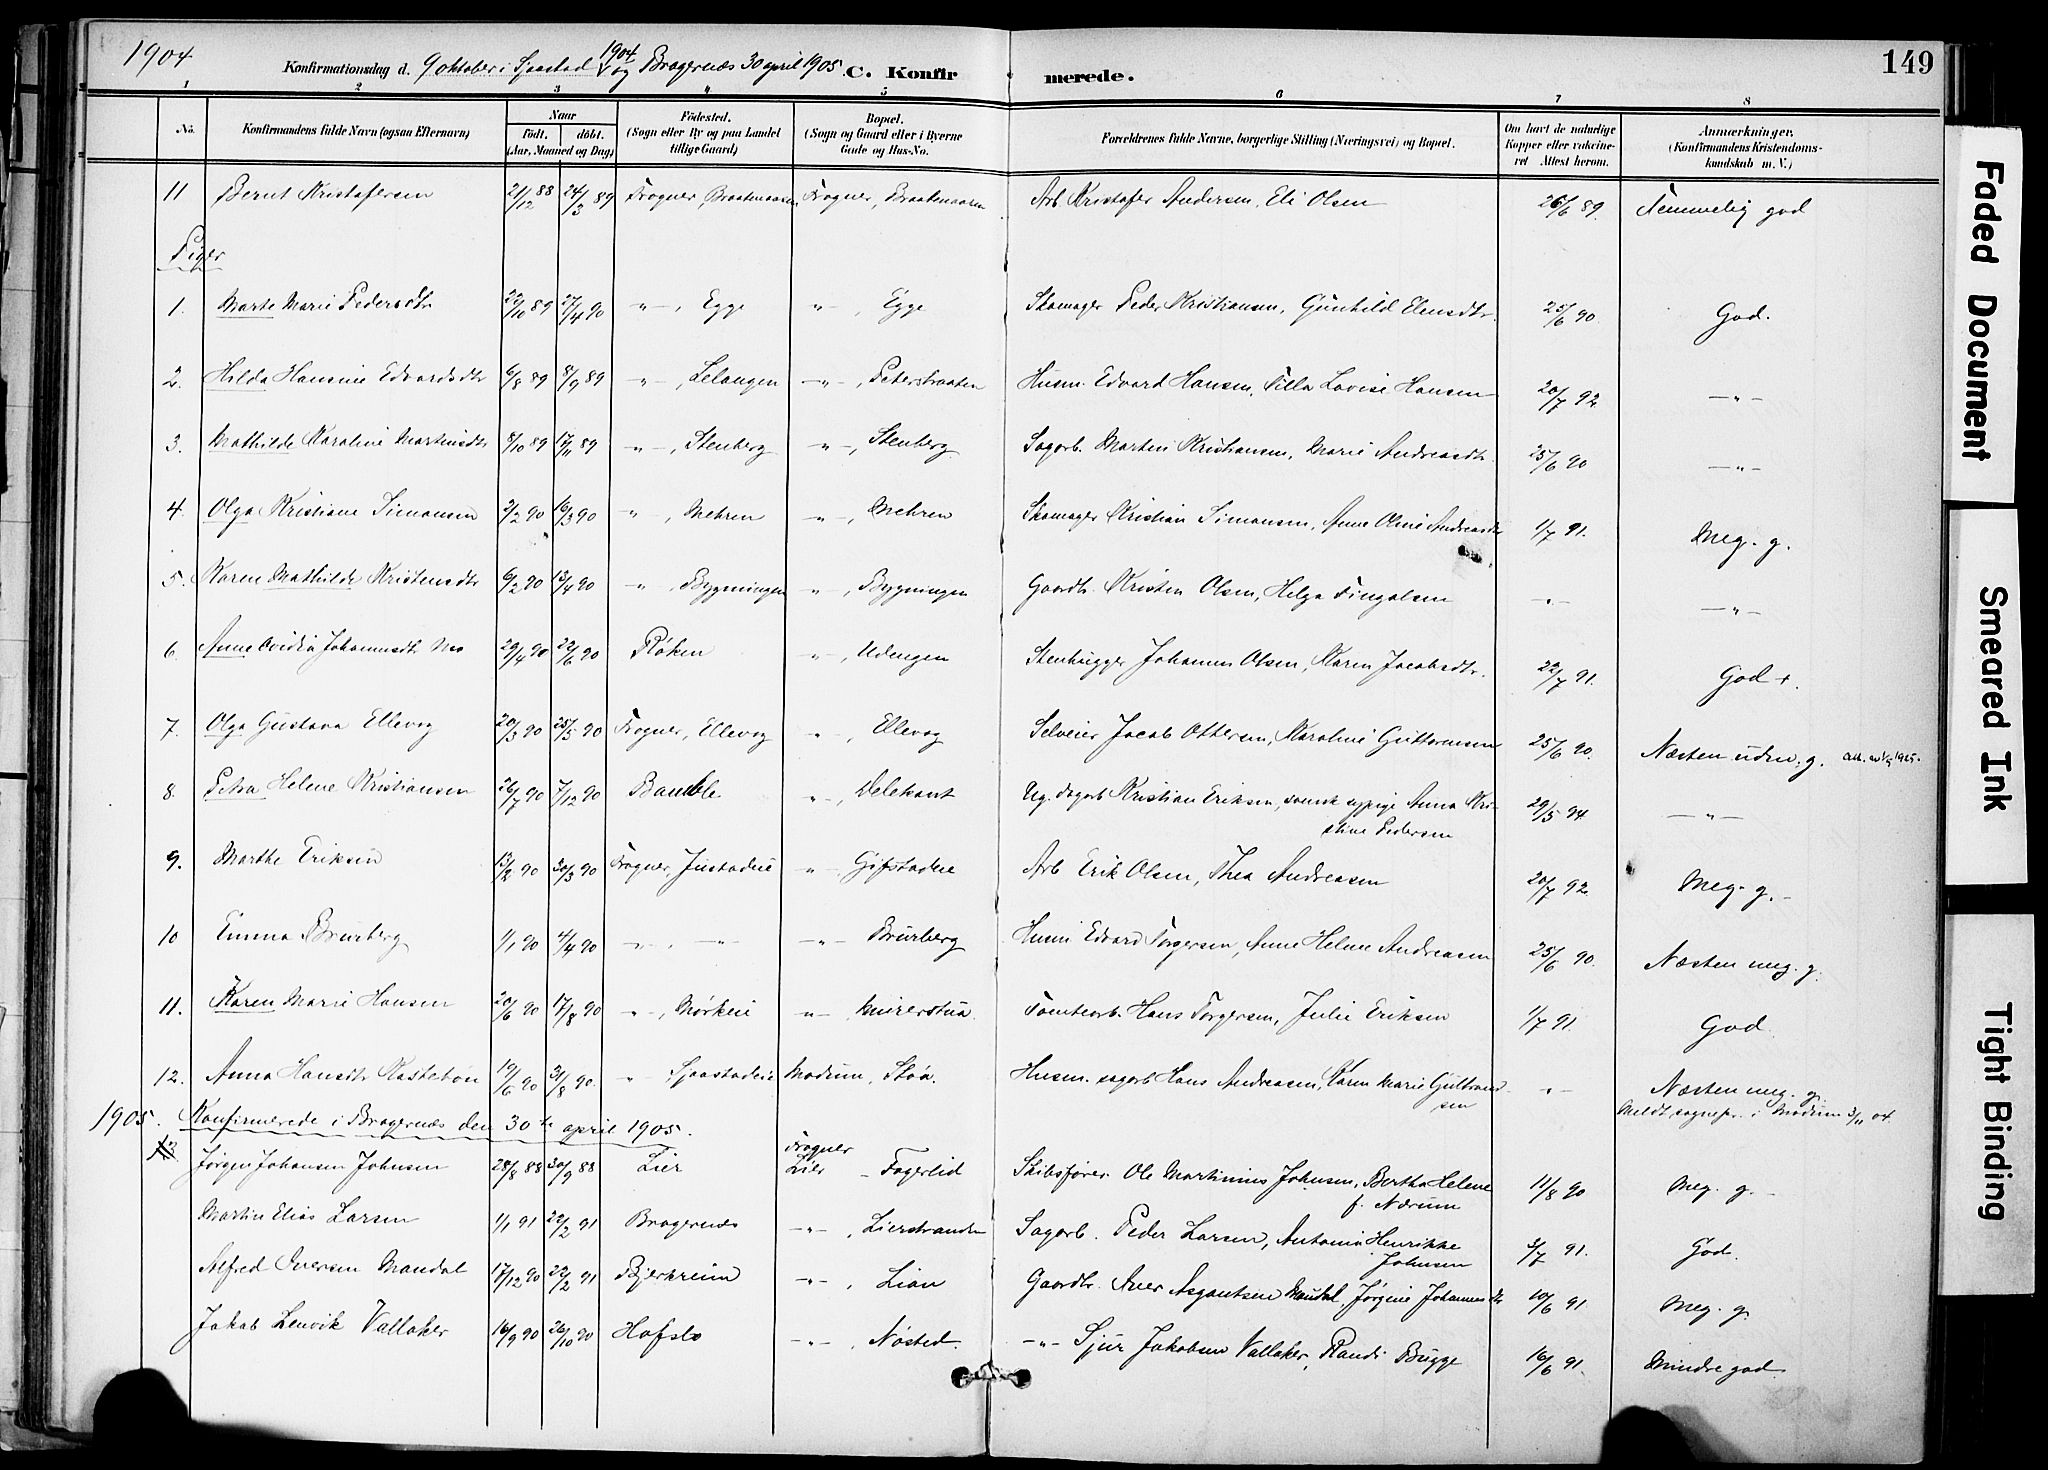 1904
Konfirmationsdag d. 9 oktober i Sjaastad 1904 og Bragernæs 30 april 1905. C. Konfirmerede. 149
1 2 3 4 5 6 7 8
No. Konfirmandens fulde Navn (ogsaa Efternavn) Naar födt. döbt. (Aar, Maaned og Dag) Födested. (Sogn eller By og paa Landet tillige Gaard) Bopæl. (Sogn og Gaard eller i Byerne Gade og Hus-No. Forældrenes fulde Navne, borgerlige Stilling (Næringsvei) og Bopæl. Om havt de naturlige Kopper eller vakcineret Attest herom. Anmærkninger. (Konfirmandens Kristendomskundskab m. V.)
11 Bernt Kristofersen 21/12 88 24/3 89 Frogner, Braatenaasen Frogner, Braatenaasen Arb. Kristofer Andersen, Eli Olsen 26/6 89. Temmelig god
Piger
1. Marte Marie Pedersdtr 22/10 89 27/4 90 -"-, Egge -"-, Egge Skomager Peder Kristiansen, Gunhild Elensdtr. 25/6 90. God.
2. Hilda Hansine Edvardsdtr 6/8 89 8/9 89 -"-, Lelangen -"-, Peterstraaten Husm. Edvard Hansen, Tilla Lovise Hansen 20/7 92. -"-
3. Mathilde Karoline Martinsdtr 8/10 89 17/11 89 -"-, Stenberg -"-, Stenberg Sagarb. Martin Kristiansen, Marie Andreasdtr. 25/6 90 -"-
4. Olga Kristiane Simonsen 2/2 90 16/3 90 ", Mehren -"-, Mehren Skomager Kristian Simonsen, Anne Oline Andreasdtr 1/7 91. Meg. g.
5. Karen Mathilde Kristensdtr 6/2 90 13/4 90 -"-, Bygningen -"-, Bygningen Gaardbr. Kristen Olsen, Helga Fingalsen -"- -"-
6. Anne Ovidia Johannesdtr Moe 29/4 90 22/6 90 Røken -"-, Udengen Stenhugger Johannes Olsen, Karen Jacobsdtr. 22/7 91. God +.
7. Olga Gustava Ellevog 20/3 90 25/5 90 Frogner, Ellevog -"-, Ellevog Selveier Jacob Ottersen, Karoline Guttormsen 25/6 90. Næsten uden. g. 1925.
8. Petra Helene Kristiansen 26/7 90 7/12 90 Bamble -"-, Delekant Ug. dagarb Kristian Eriksen, svensk sypige Anna Kri-
stine Pedersen 29/5 94 -"-
9. Marthe Eriksen 13/2 90 30/3 90 Frogner, Justadeie -"- Gifstadeie Arb Erik Olsen, Thea Andreasen 20/7 92. Meg. g.
10 Emma Brurberg 1/1 90 4/4 90 -"-, -"- -"- Brurberg Husm. Edvard Torgersen, Anne Helene Andreasen 25/6 90. Næsten meg. g.
11. Karen Marie Hansen 20/6 90 17/8 90 -"-, Mørkeie -"-, Murerstua. Tomtearb. Hans Torgersen, Julie Eriksen 1/7 91. God.
12. Anna Hansdtr Kastebøn 19/6 90 31/8 90. ", Sjaastadeie Modum, Stoa. Husm. sagarb Hans Andreasen, Karen Marie Gulbrand-
sen -"- Næsten meg. g.
Meldt sognepr. i Modum 3/11 04.
1905. Konfirmerede i Bragernæs den 30te april 1905.
13. Jørgen Johansen Johnsen 28/8 88 30/9 88 Lier Frogner Lier - Fagerlid Skibsfører. Ole Martinius Johnsen, Bertha Helene
f. Nærum 11/8 90 Meg. g.
Martin Elias Larsen 1/1 91 22/2 91 Bragernæs -"-, Lierstranden Sagarb. Peder Larsen, Antonia Henrikke
Johnsen 3/7 91. God.
Alfred Iversen Mandal 17/12 90 22/2 91 Bjerkreim -"-, Lian Gaardbr. Aner Asgautsen Mandal, Jørgine Johannesdtr 10/6 91. Meg. g.
Jakob Lenvik Vallaker 16/9 90 26/10 90 Hafslo -"-, Nøsted. -"- Sjur Jakobsen Vallaker, Randi Bugge 16/6 91. Mindre god
Faded Document
Smeared Ink
Tight Binding